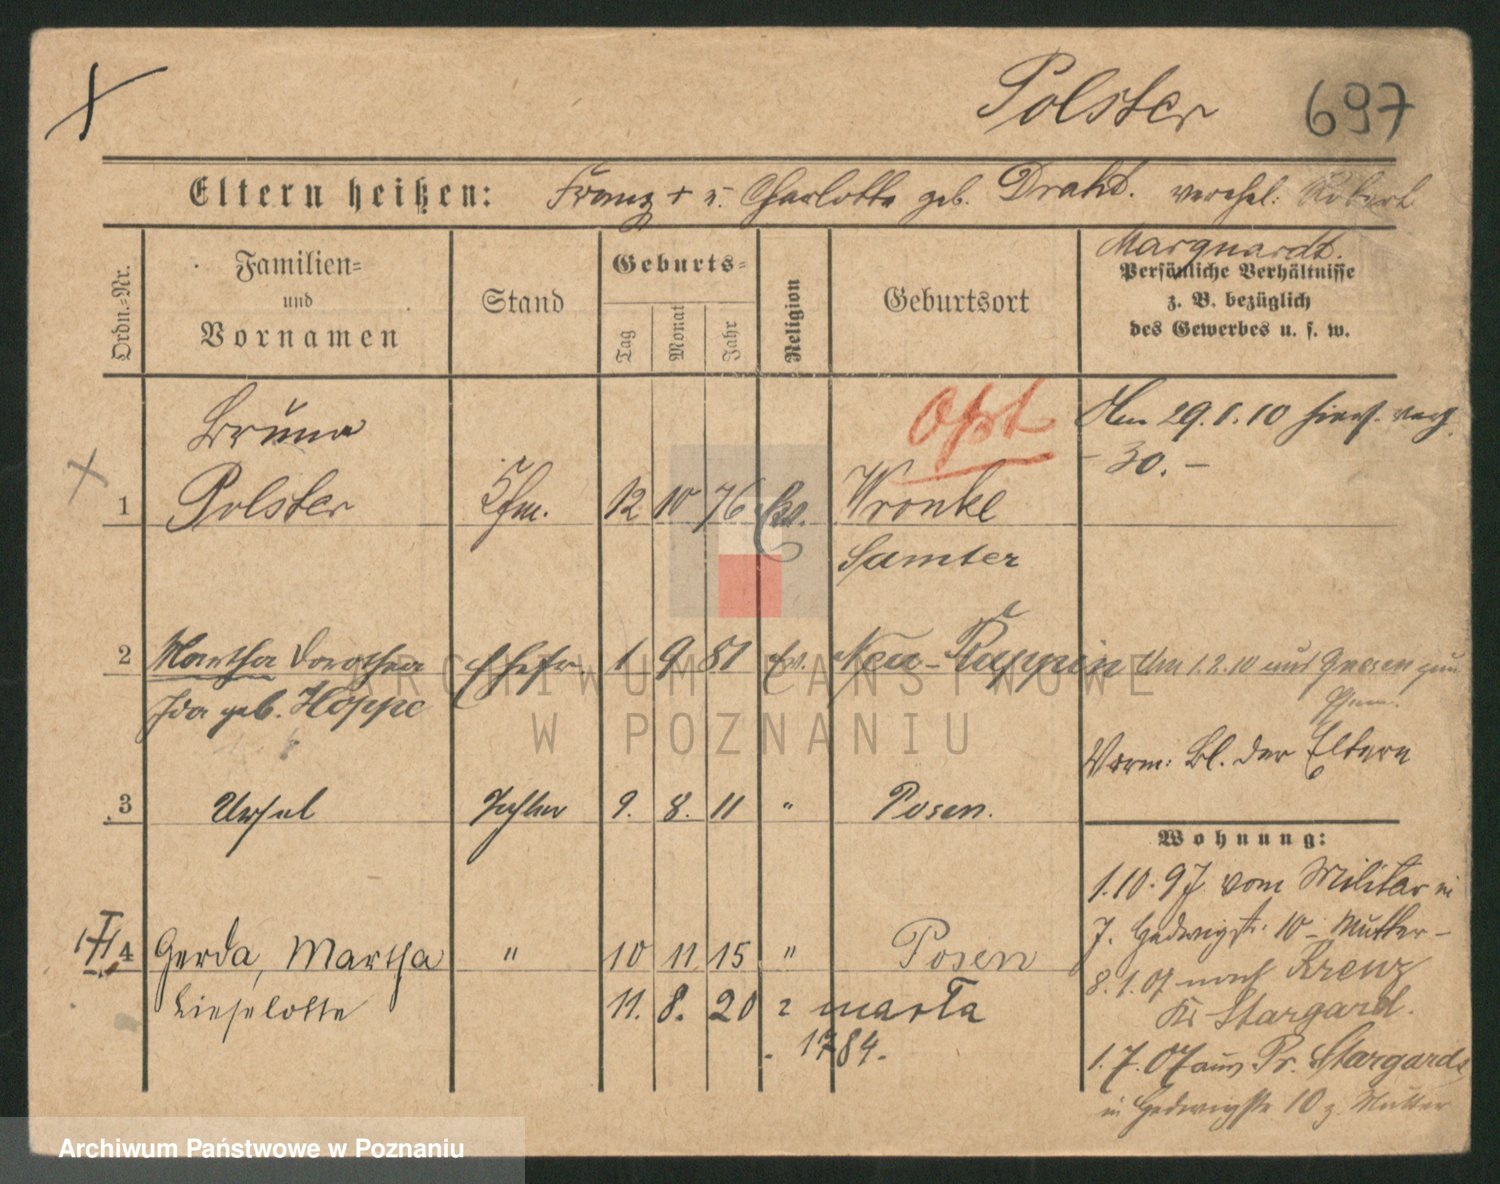 Polster 697
Eltern heißen: Franz + u. Charlotte geb. Draht. verehel: Robert
Marquardt.
Ordn.-Nr.
Familien-
und
Vornamen
Stand
Geburts-
Tag
Monat
Jahr
Religion
Geburtsort
Persönliche Verhältnisse
z. B. bezüglich
des Gewerbes u. s. w.
Opt
Bruno
1 Polster Kfm. 12 10 76 Ev. Wronke
Samter
Am 29.1.10
- 30. -
2 Martha Dorothea Ehefr. 1 9 81 Ev. Neu-Ruppin Um 1.2.10 aus Gnesen zum
Ida geb. Hoppe
Vorm: Bl. der Eltern
3 Ursel Tochter 9. 8. 11 " Posen.
Wohnung:
1.10.97 vom Militär in
J. Hedwigstr. 10 - Mutter -
8.1.07 nach Krenz
Kr Stargard.
1.7.07 aus Pr. Stargard
in Hedwigstr 10 z. Mutter
4 Gerda, Martha " 10 11 15 " Posen
Lieselotte 11. 8. 20 2 marta
1784.
ARCHIWUM PAŃSTWOWE
W POZNANIU
Archiwum Państwowe w Poznaniu